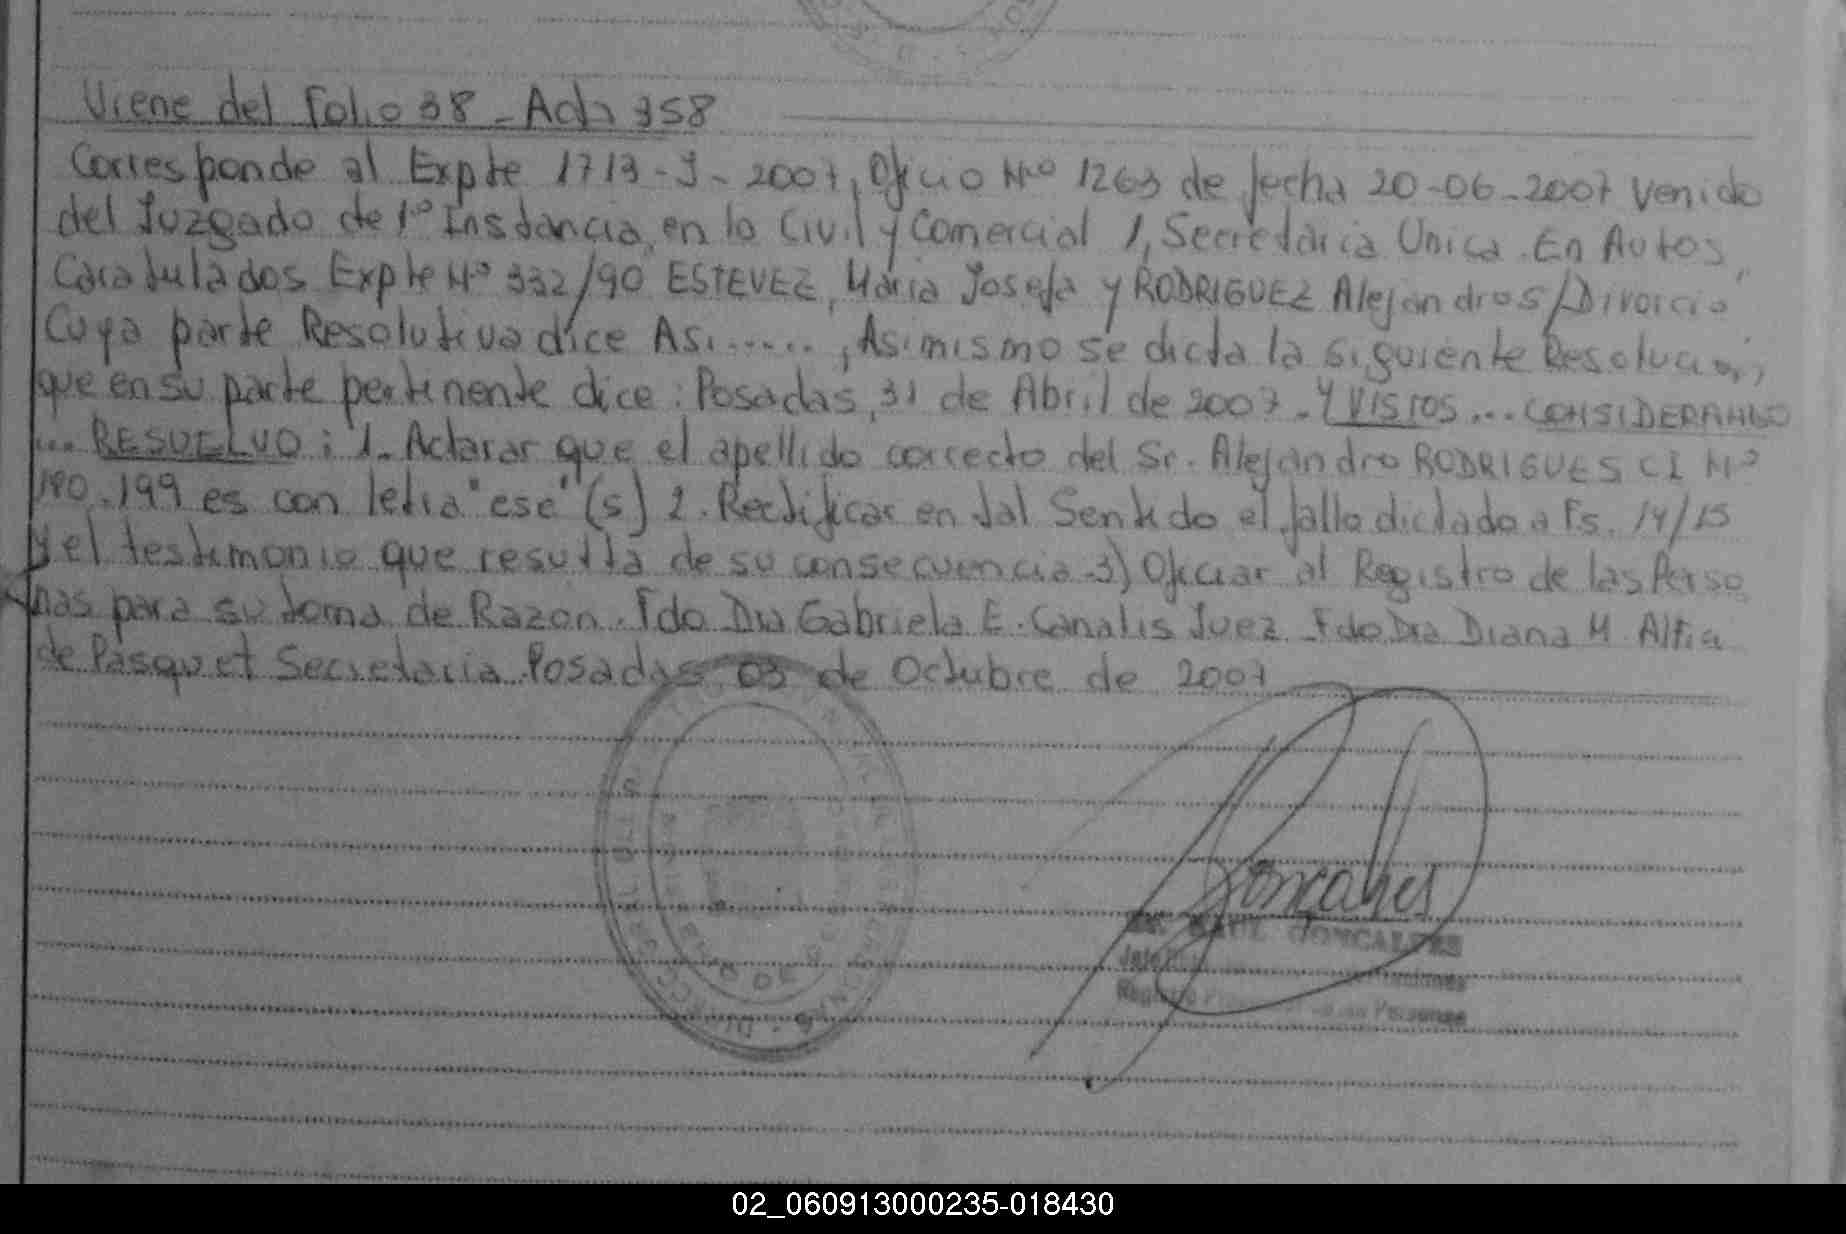 Viene del Folio 38 - Acta 358
Corresponde al Expte 1713-J-2007, Oficio Nº 1263 de fecha 20-06-2007 venido
del Juzgado de 1º Instancia, en lo Civil y Comercial 1, Secretaria Unica. En Autos
Caratulados Expte Nº 332/90 ESTEVEZ, Maria Josefa y RODRIGUEZ Alejandro s/Divorcio"
Cuya parte Resolutiva dice Asi......, Asimismo se dicta la siguiente Resolucion,
que en su parte pertinente dice: Posadas, 31 de Abril de 2007. Y VISTOS... CONSIDERANDO
... RESUELVO: 1. Aclarar que el apellido correcto del Sr. Alejandro RODRIGUES CI Nº
190.199 es con letra "ese" (s) 2. Rectificar en tal Sentido el fallo dictado a Fs. 14/15
y el testimonio que resulta de su consecuencia 3) Oficiar al Registro de las Perso
nas para su toma de Razon. Fdo Dra Gabriela E. Canalis Juez. Fdo Dra Diana M
de Pasquet Secretaria. Posadas, 03 de Octubre de 2007
Goncalves
RAUL GONCALVES
Registro Personas
02_060913000235-018430